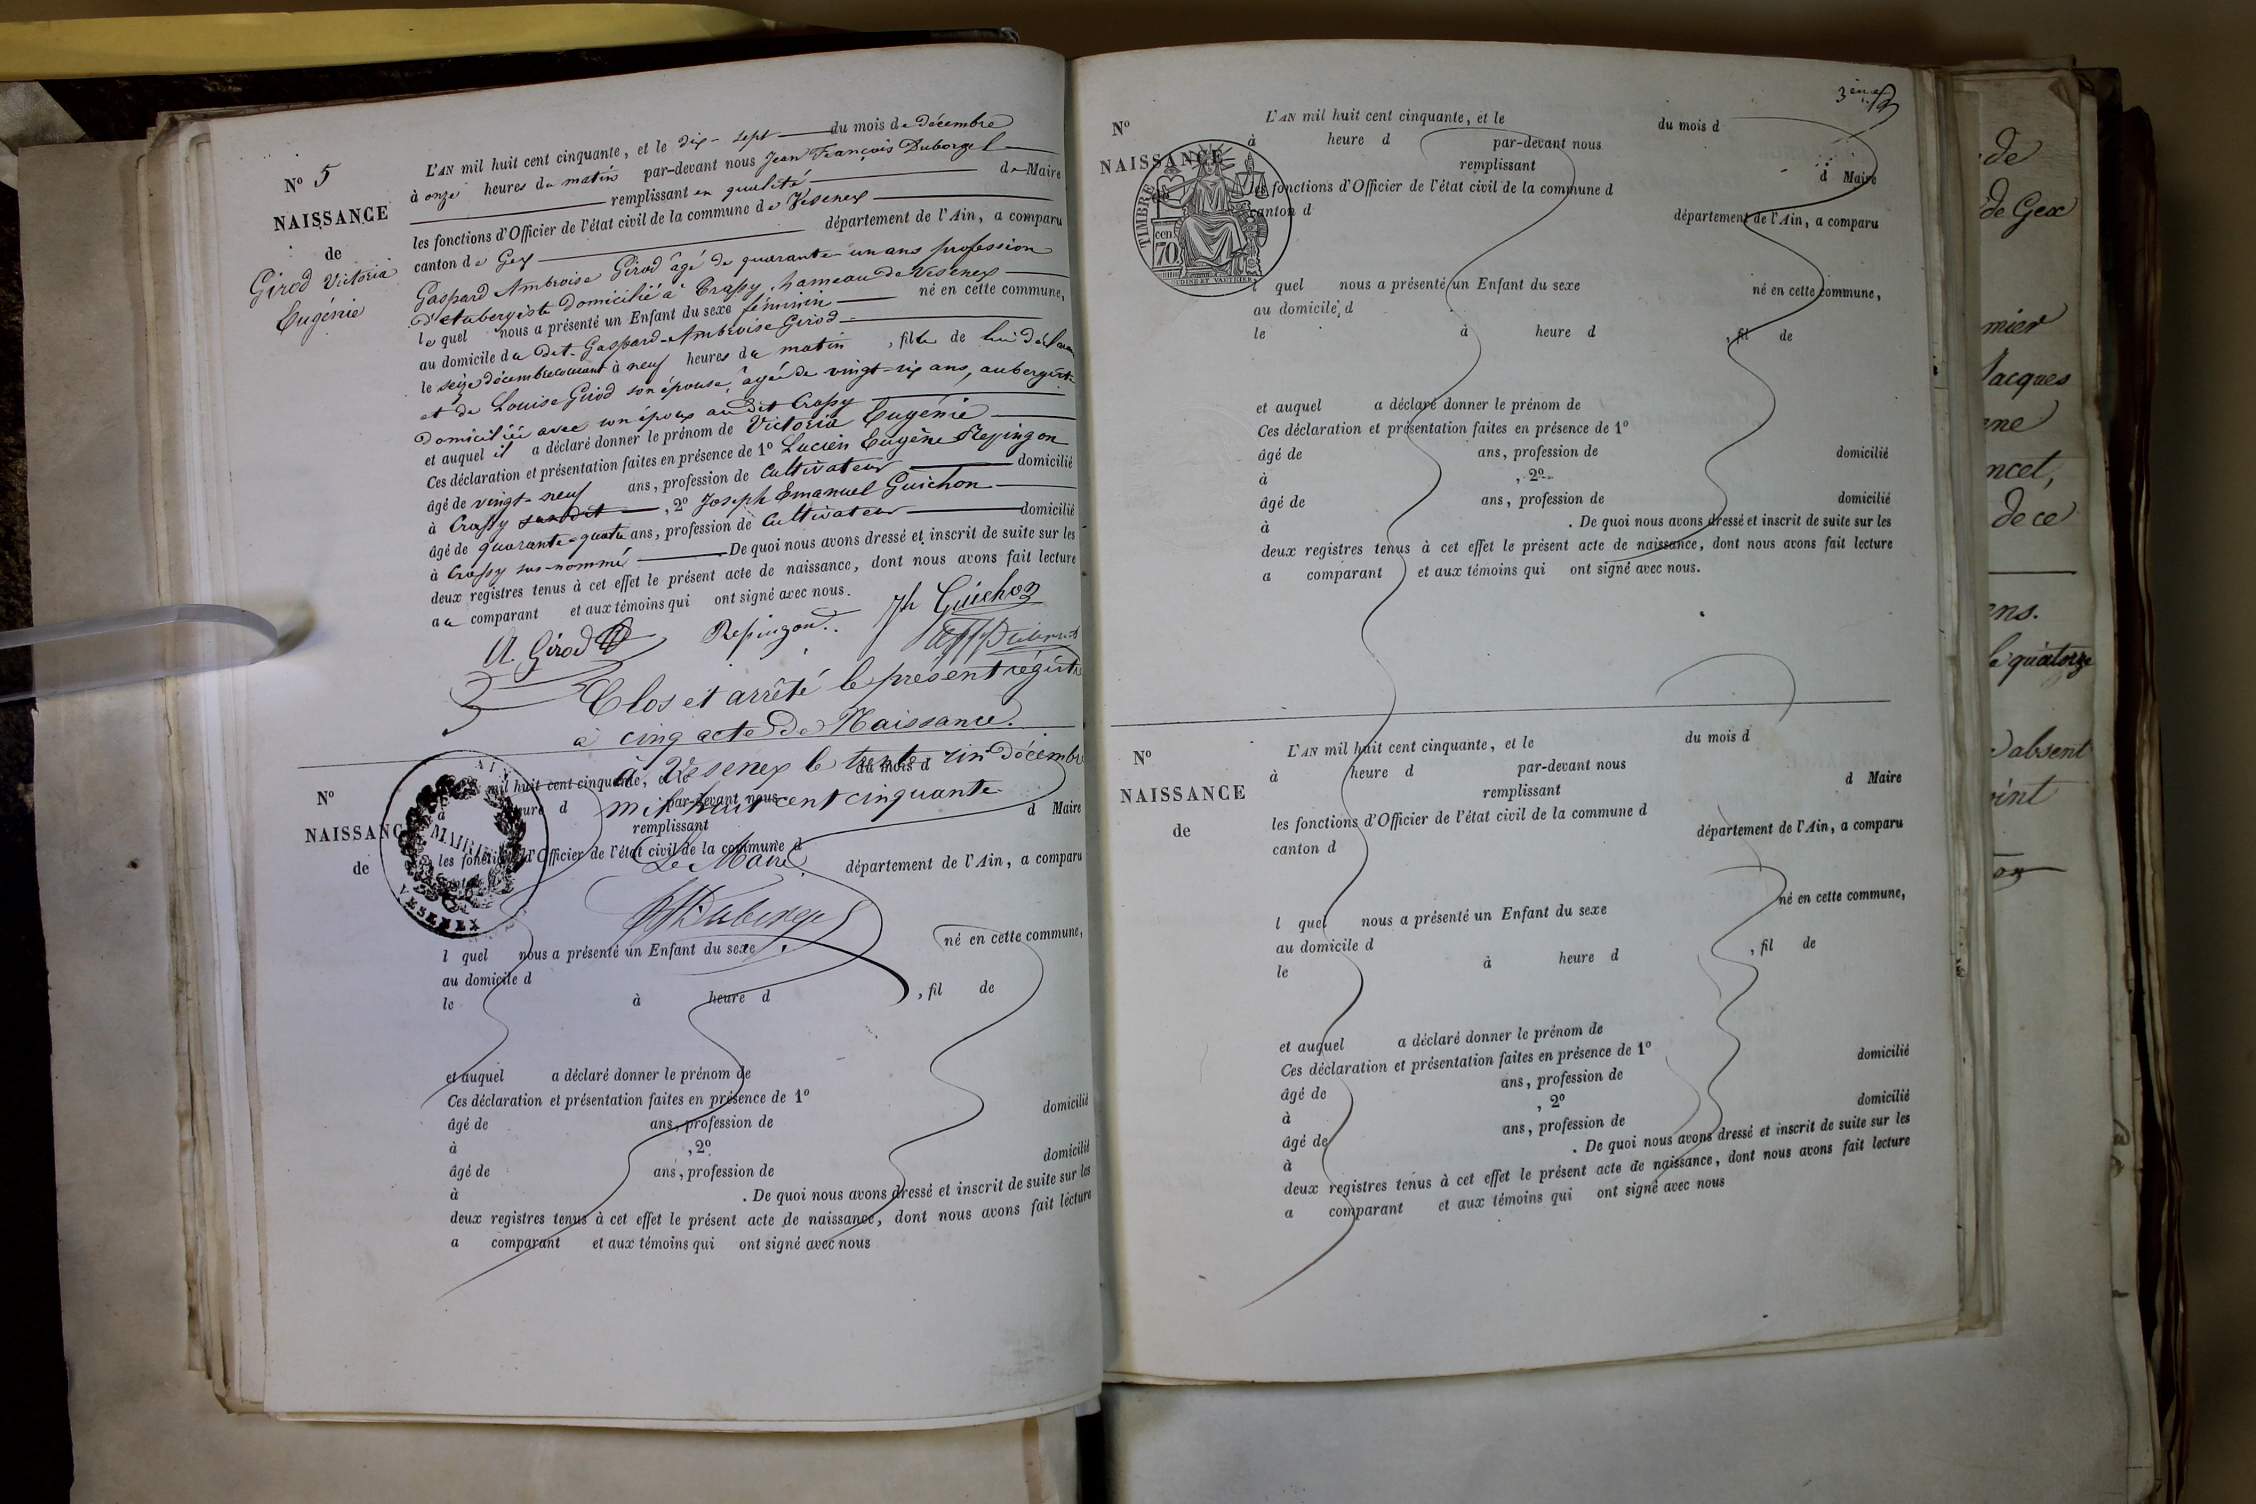 N° 5
NAISSANCE
de
Girod Victoria
Eugénie
L'AN mil huit cent cinquante, et le dix-sept du mois de Décembre
à onze heures du matin par-devant nous Jean François Duborgel
remplissant en qualité de Maire
les fonctions d'Officier de l'état civil de la commune de Vésenex
canton de Gex département de l'Ain, a comparu
Gaspard Ambroise Girod âgé de quarante-un ans profession
d'Aubergiste domicilié à Crassy, hameau de Vesenex
le quel nous a présenté un Enfant du sexe féminin né en cette commune,
au domicile du dit Gaspard-Ambroise Girod
le seize décembre courant à neuf heures du matin, fille de lui déclarant
et de Louise Girod son épouse, âgée de vingt-six ans, aubergiste
Domiciliée avec son époux au dit Crassy
et auquel il a déclaré donner le prénom de Victoria Eugénie
Ces déclaration et présentation faites en présence de 1° Lucien Eugène Repingon
âgé de vingt-neuf ans, profession de Cultivateur domicilié
à Crassy susdit, 2° Joseph Emanuel Guichon
âgé de quarante-quatre ans, profession de Cultivateur domicilié
à Crassy sus-nommé De quoi nous avons dressé et inscrit de suite sur les
deux registres tenus à cet effet le présent acte de naissance, dont nous avons fait lecture
au comparant et aux témoins qui ont signé avec nous.
A. Girod Repingon Jh Guichon
Clos et arrêté le présent régistre
à cinq acte de Naissance.
à Vesenex le trente-un Décembre
mil huit cent cinquante
Le Maire
N°
NAISSANCE
de
mil huit cent cinquante, et le du mois d
à heure d par-devant nous
remplissant d Maire
les fonctions d'Officier de l'état civil de la commune d
département de l'Ain, a comparu
MAIRIE
VESENEX
l quel nous a présenté un Enfant du sexe né en cette commune,
au domicile d
le à heure d , fil de
et auquel a déclaré donner le prénom de
Ces déclaration et présentation faites en présence de 1°
âgé de ans, profession de domicilié
à , 2°
âgé de ans, profession de domicilié
à . De quoi nous avons dressé et inscrit de suite sur les
deux registres tenus à cet effet le présent acte de naissance, dont nous avons fait lecture
a comparant et aux témoins qui ont signé avec nous
N°
NAISSANCE
TIMBRE
70
cen
L'AN mil huit cent cinquante, et le du mois d
à heure d par-devant nous
remplissant d Maire
les fonctions d'Officier de l'état civil de la commune d
canton d département de l'Ain, a comparu
l quel nous a présenté un Enfant du sexe né en cette commune,
au domicile d
le à heure d , fil de
et auquel a déclaré donner le prénom de
Ces déclaration et présentation faites en présence de 1°
âgé de ans, profession de domicilié
à , 2°
âgé de ans, profession de domicilié
à . De quoi nous avons dressé et inscrit de suite sur les
deux registres tenus à cet effet le présent acte de naissance, dont nous avons fait lecture
a comparant et aux témoins qui ont signé avec nous.
N°
NAISSANCE
de
L'AN mil huit cent cinquante, et le du mois d
à heure d par-devant nous
remplissant d Maire
les fonctions d'Officier de l'état civil de la commune d
canton d département de l'Ain, a comparu
l quel nous a présenté un Enfant du sexe né en cette commune,
au domicile d
le à heure d , fil de
et auquel a déclaré donner le prénom de
Ces déclaration et présentation faites en présence de 1°
âgé de ans, profession de domicilié
à , 2°
âgé de ans, profession de domicilié
à . De quoi nous avons dressé et inscrit de suite sur les
deux registres tenus à cet effet le présent acte de naissance, dont nous avons fait lecture
a comparant et aux témoins qui ont signé avec nous
de
de Gex
Jacques
de ce
quatorze
absent